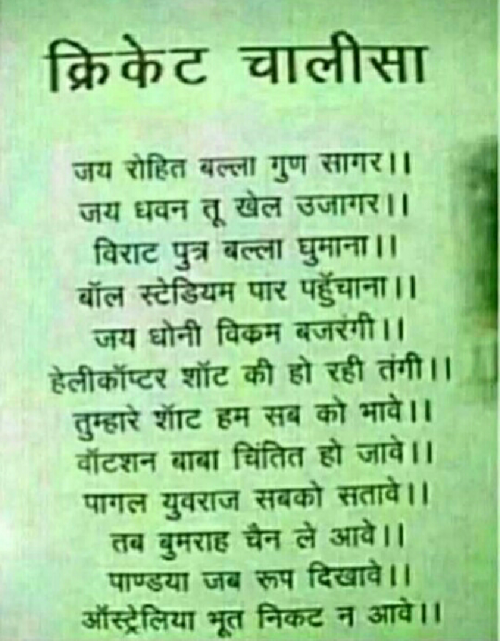 क्रिकेट चालीसा
जय रोहित बल्ला गुण सागर।।
जय धवन तू खेल उजागर।।
विराट पुत्र बल्ला घुमाना।।
बॉल स्टेडियम पार पहुँचाना।।
जय धोनी विकम बजरंगी।।
हेलीकॉप्टर शॉट की हो रही तंगी।।
तुम्हारे शॉट हम सब को भावे।।
वॉटशन बाबा चिंतित हो जावे।।
पागल युवराज सबको सतावे।।
तब बुमराह चैन ले आवे।।
पाण्डया जब रूप दिखावे।।
ऑस्ट्रेलिया भूत निकट न आवे।।